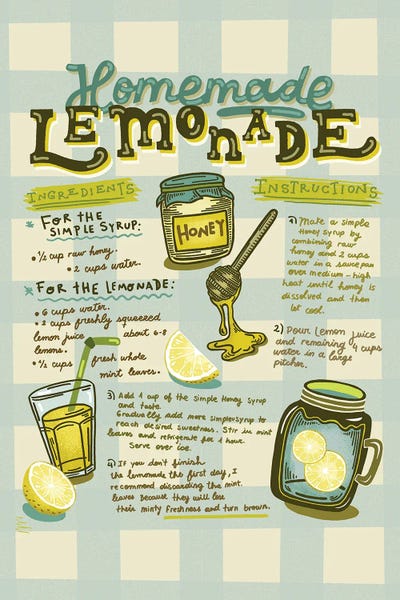 Homemade
LEMONADE
INGREDIENTS
* FOR THE
SIMPLE SYRUP:
• ½ cup raw honey.
• 2 cups water.
* FOR THE LEMONADE:
• 6 cups water.
• 2 cups freshly squeezed
lemon juice about 6-8
lemons.
• ½ cups fresh whole
mint leaves.
HONEY
INSTRUCTIONS
1) Make a simple
Honey syrup by
combining raw
honey and 2 cups
water in a saucepan
over medium-high
heat until honey is
dissolved and then
let cool.
2) Pour Lemon juice
and remaining 4 cups
water in a large
pitcher.
3) Add 1 cup of the simple Honey syrup
and taste.
Gradually add more simple syrup to
reach desired sweetness. Stir in mint
leaves and refrigerate for 1 hour.
Serve over ice.
4) If you don't finish
the lemonade the first day, I
recommend discarding the mint.
leaves Because they will lose
their minty freshness and turn brown.